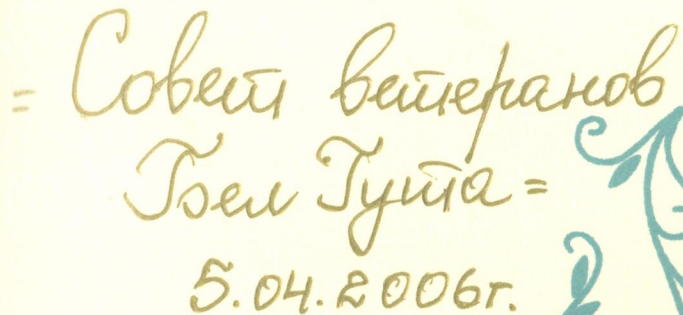 = Совет ветеранов
Бел Гута =
5.04.2006г.